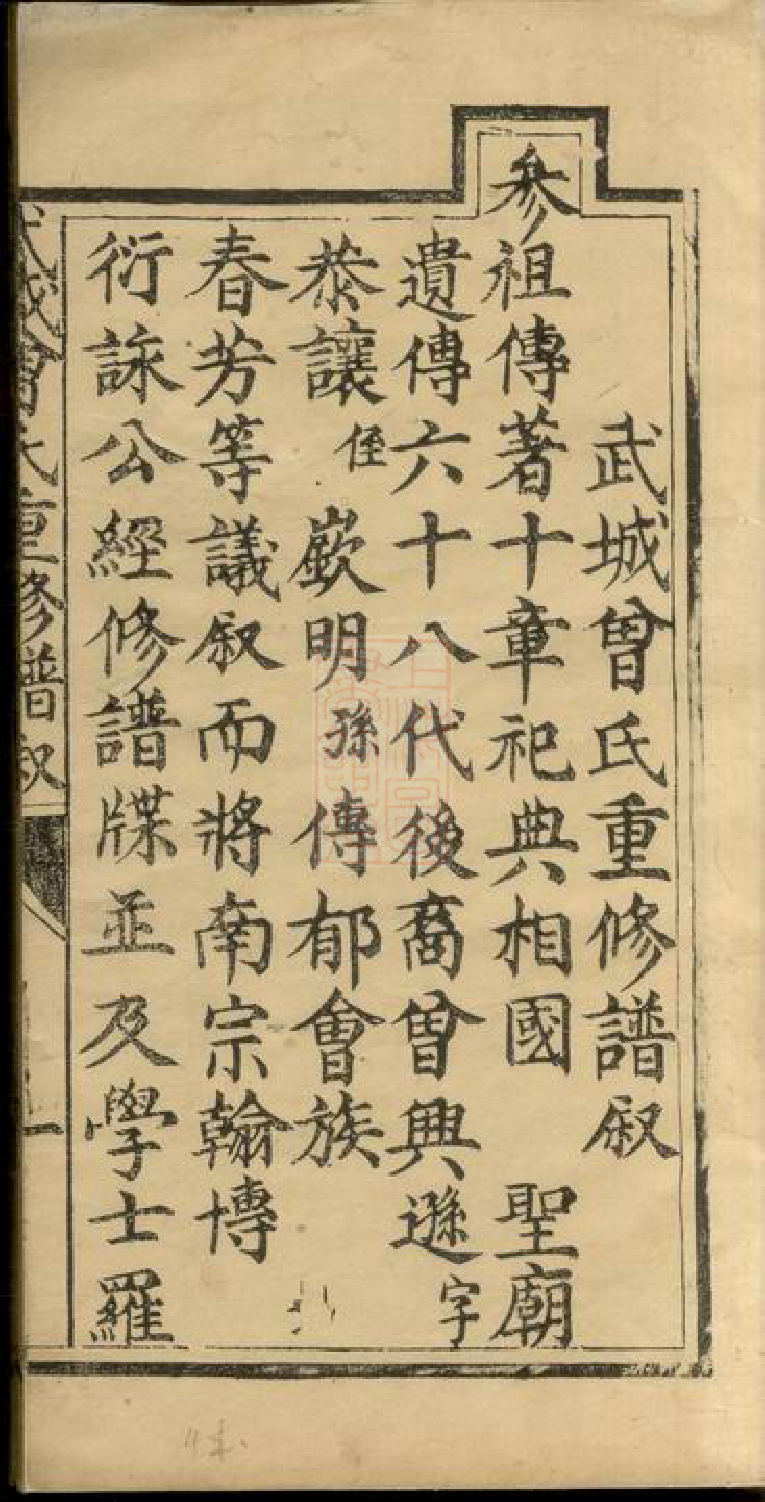 武城曾氏重修譜叙
參祖傳著十章祀典相國　聖廟
遺傳六十八代後裔曾興遜字
恭讓侄嶔明孫傳郁會族
春芳等議叙而將南宗翰博
衍詠公經修譜牒並及學士羅
武城曾氏重修譜叙
一